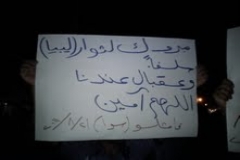 مبروك لثوار (ليبيا)
سلفاً.
وعقبال عندنا
اللهم آمين